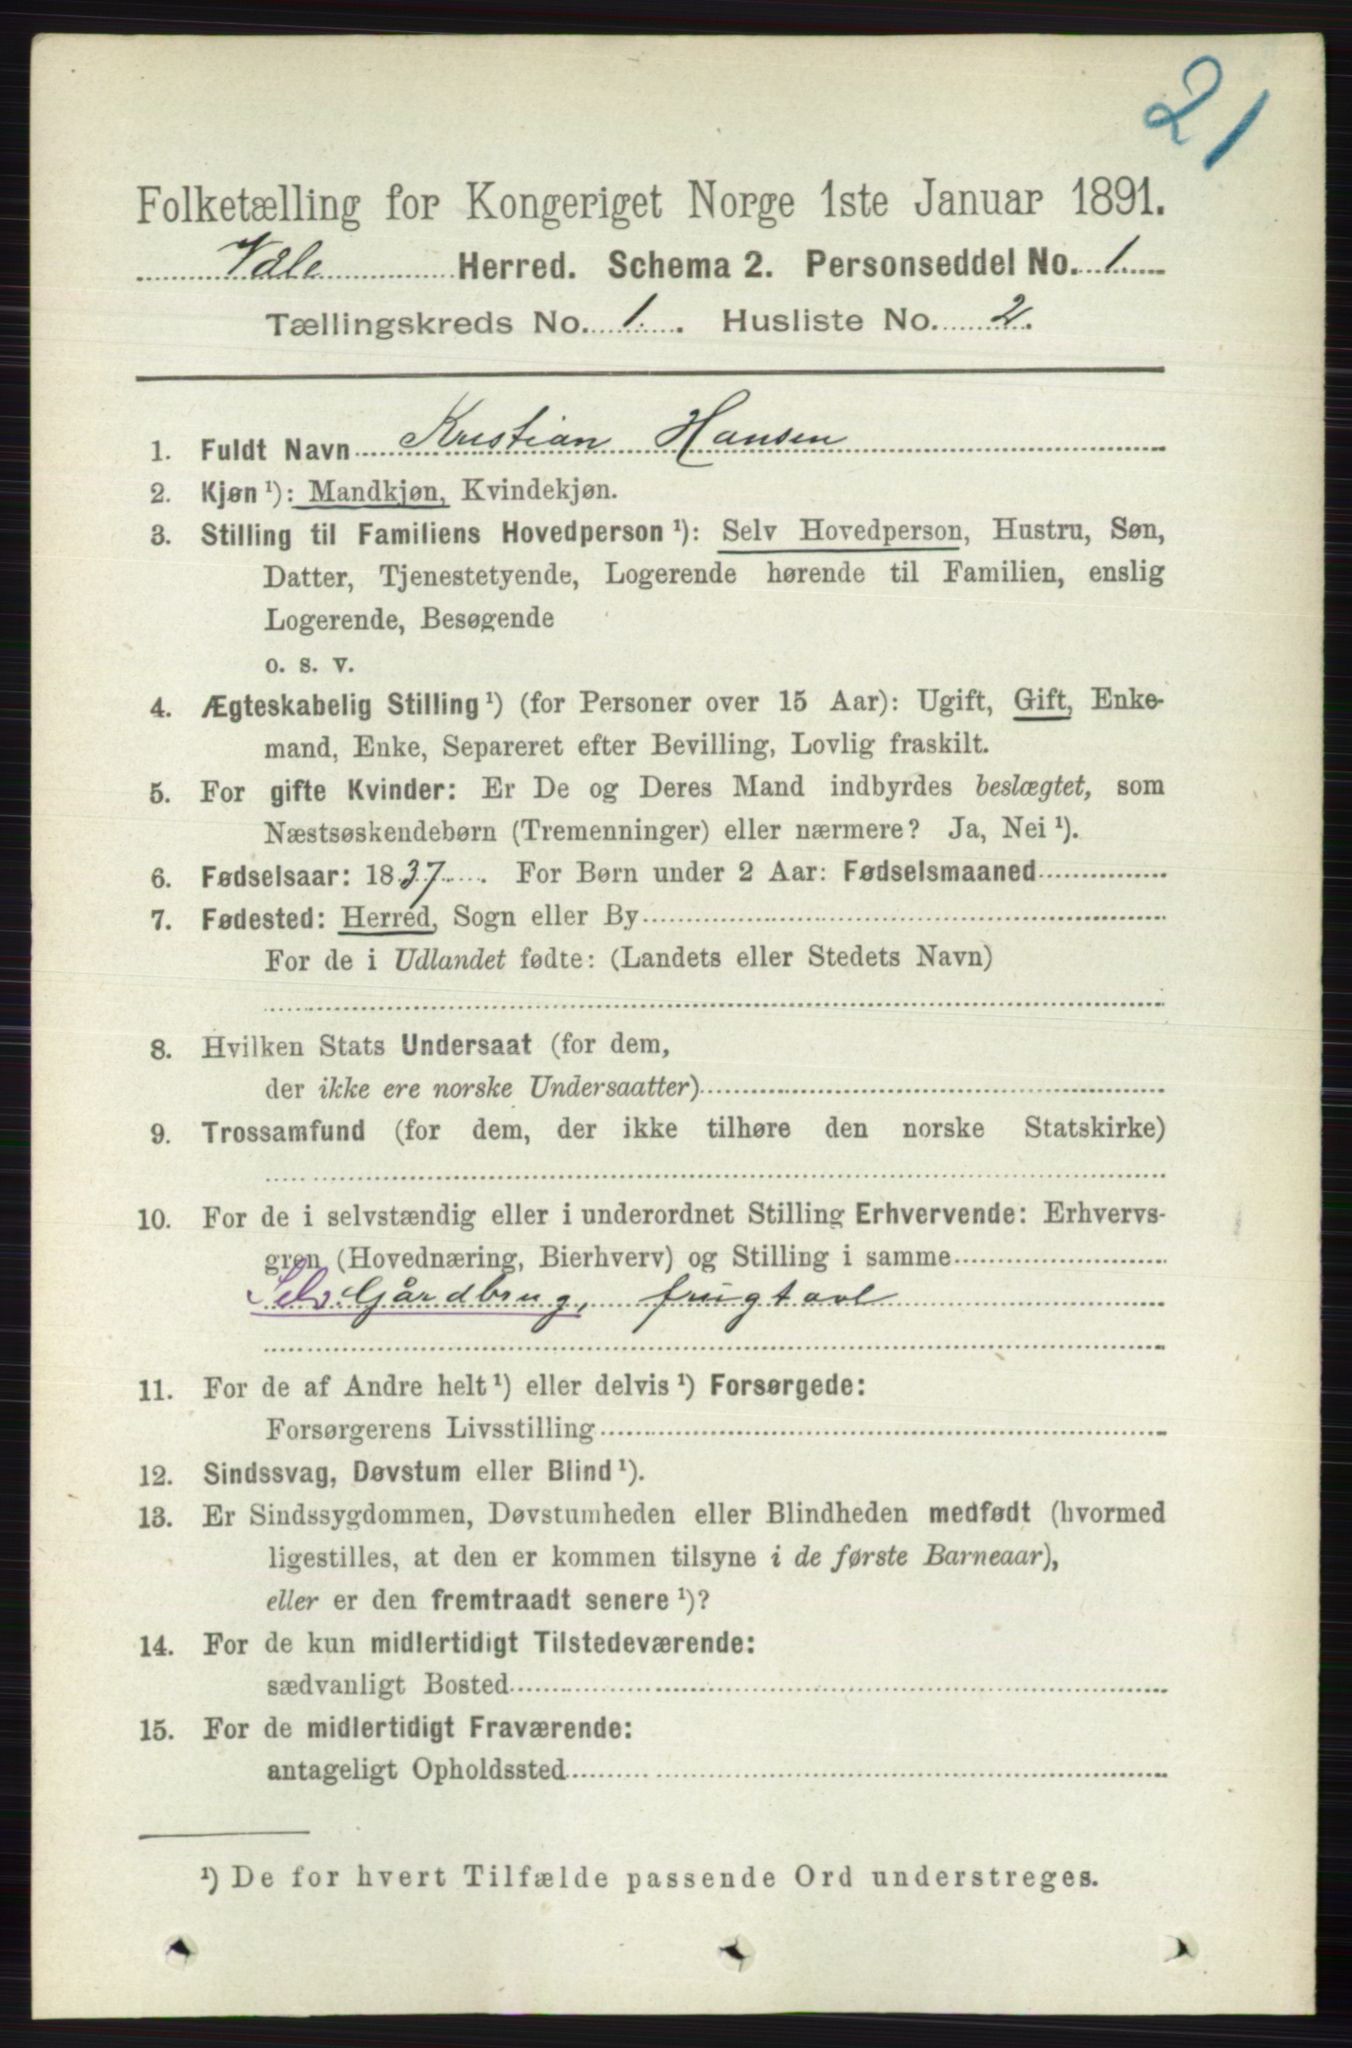 21
Folketælling for Kongeriget Norge 1ste Januar 1891.
Våle Herred. Schema 2. Personseddel No. 1
Tællingskreds No. 1. Husliste No. 2.
1. Fuldt Navn Kristian Hansen
2. Kjøn ¹): Mandkjøn, Kvindekjøn.
3. Stilling til Familiens Hovedperson ¹): Selv Hovedperson, Hustru, Søn,
Datter, Tjenestetyende, Logerende hørende til Familien, enslig
Logerende, Besøgende
o. s. v.
4. Ægteskabelig Stilling ¹) (for Personer over 15 Aar): Ugift, Gift, Enke-
mand, Enke, Separeret efter Bevilling, Lovlig fraskilt.
5. For gifte Kvinder: Er De og Deres Mand indbyrdes beslægtet, som
Næstsøskendebørn (Tremenninger) eller nærmere? Ja, Nei ¹).
6. Fødselsaar: 1837. For Børn under 2 Aar: Fødselsmaaned
7. Fødested: Herred, Sogn eller By
For de i Udlandet fødte: (Landets eller Stedets Navn)
8. Hvilken Stats Undersaat (for dem,
der ikke ere norske Undersaatter)
9. Trossamfund (for dem, der ikke tilhøre den norske Statskirke)
10. For de i selvstændig eller i underordnet Stilling Erhvervende: Erhvervs-
gren (Hovednæring, Bierhverv) og Stilling i samme
Selv. Gårdbrug, frugtavl
11. For de af Andre helt ¹) eller delvis ¹) Forsørgede:
Forsørgerens Livsstilling
12. Sindssvag, Døvstum eller Blind ¹).
13. Er Sindssygdommen, Døvstumheden eller Blindheden medfødt (hvormed
ligestilles, at den er kommen tilsyne i de første Barneaar),
eller er den fremtraadt senere ¹)?
14. For de kun midlertidigt Tilstedeværende:
sædvanligt Bosted
15. For de midlertidigt Fraværende:
antageligt Opholdssted
¹) De for hvert Tilfælde passende Ord understreges.